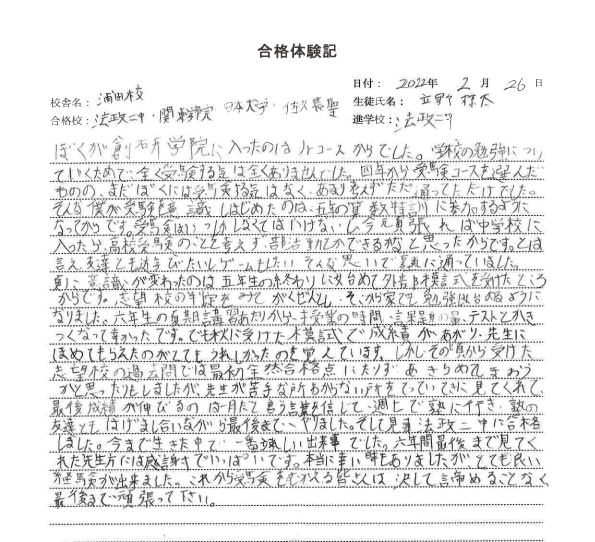 合格体験記
日付： 2022年 2月 26日
校舎名： 蒲田校
生徒氏名：
合格校： 法政二中・関東学院 日本大学・佐久長聖
進学校： 法政二中
ぼくが創研学院に入ったのはJrコースからでした。学校の勉強につい
ていくためで、全く受験する気は全くありませんでした。四年から受験コースを選んだ
ものの、まだぼくには受験する気はなく、あまり考えずただ通ってただけでした。
そんな僕が受験を意識しはじめたのは、五年の算数特訓に参加するように
なってからです。受験をいつかしなくてはいけないし今頑張れば中学校に
入ったら、高校受験のことを考えず部活動とかできるかなと思ったからです。とは
言え友達とも遊びたいしゲームもしたいそんな思いで塾に通っていました。
真に意識が変わったのは五年生の終わりに始めて外部模試を受けたところ
からです。志望校の判定をみてがくぜんとし、そこから家でも勉強し始めるように
なりました。六年生の夏期講習あたりから、授業の時間、宿題の量、テストとかき
つくなって辛かったです。でも秋に受けた模試で成績があがり、先生に
ほめてもらえたのがとてもうれしかったのを覚えています。しかしその頃から受けた
志望校の過去問では最初全然合格点にたりずあきらめてしまおう
かと思ったりもしましたが、先生が苦手な所わからない所をていねいに見てくれて
最後成績が伸びるのは一月だと言う言葉を信じて、週七で塾に行き、塾の
友達ともはげまし合いながら最後までやりました。そして見事法政二中に合格
しました。今まで生きた中で一番嬉しい出来事でした。六年間最後まで見てく
れた先生方には感謝でいっぱいです。本当に辛い時もありましたがとても良い
経験が出来ました。これから受験をむかえる皆さんは決して諦めることなく
最後まで頑張って下さい。